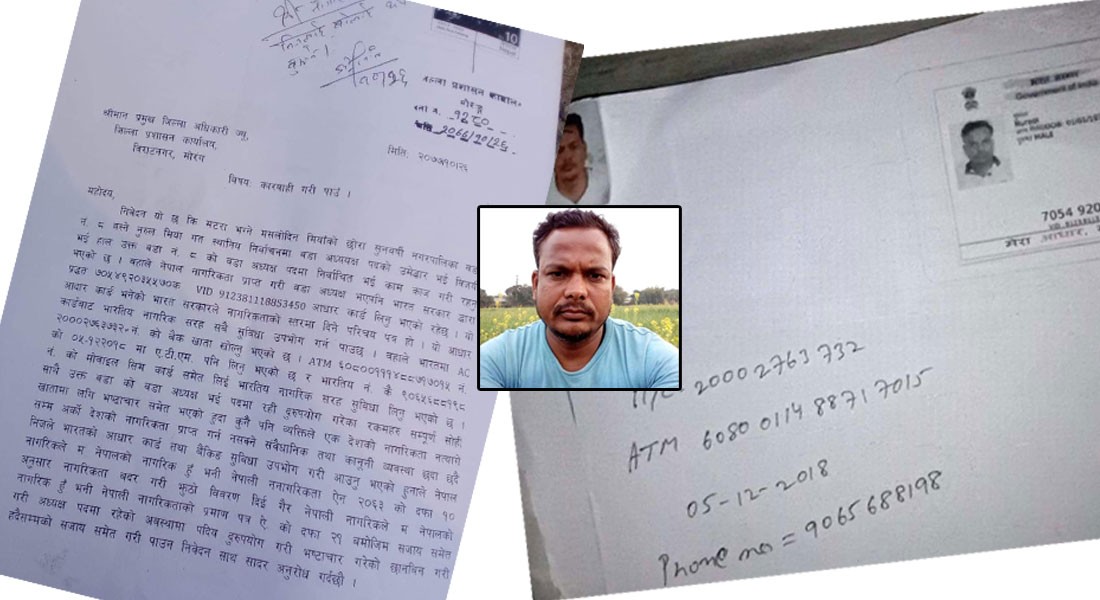 १०।२६
जिल्ला प्रशासन कार्यालय
मोरङ
१२८०
२०७७।१०।२६
श्रीमान प्रमुख जिल्ला अधिकारी ज्यू,
जिल्ला प्रशासन कार्यालय,
विराटनगर, मोरंग
मिति: २०७७।१०।२६
विषय: कारवाही गरी पाउँ ।
महोदय,
निवेदन यो छ कि मटरा भन्ने मसलोदिन मियाँको छोरा सुनवर्षी नगरपालिका वडा
नं. ८ वस्ने नुरुल मिया गत स्थानिय निर्वाचनमा वडा अध्यक्ष पदको उमेद्वार भई विजय
भई हाल उक्त वडा नं. ८ को वडा अध्यक्ष पदमा निर्वाचित भई काम काज गरी रहनु
भएको छ । वहाले नेपाल नागरिकता प्राप्त गरी वडा अध्यक्ष भएपनि भारत सरकार द्वारा
प्रद्धत ७०५४९२०३५५७०क VID 912381118853450 आधार कार्ड लिनु भएको रहेछ । यो
आधार कार्ड भनेको भारत सरकारले नागरिकताको स्तरमा दिने परिचय पत्र हो । यो आधार
कार्डवाट भारतिय नागरिक सरह सवै सुविधा उपभोग गर्न पाउछ । वहाले भारतमा AC
२०००२७६३७३२ नं. को बैक खाता खोल्नु भएको छ । ATM ६०८००११४८८७१७०१५ नं.
को ०५-१२२०१८ मा ए.टी.एम. पनि लिनु भएको छ र भारतिय नं. कै ९०६५६८८१९८
नं. को मोवाइल सिम कार्ड समेत लिई भारतिय नागरिक सरह सुविधा लिनु भएको छ ।
साथै उक्त वडा को वडा अध्यक्ष भई पदमा रही दुरुपयोग गरेका रकमहरु सम्पूर्ण सोही
खातामा लगि भष्टाचार समेत भएको हुदा कुनै पनि व्यक्तिले एक देशको नागरिकता नत्यागे
सम्म अर्को देशको नागरिकता प्राप्त गर्न नसक्ने संवैधानिक तथा कानूनी व्यवस्था छदा छदै
निजले भारतको आधार कार्ड तथा बैकिङ सुविधा उपभोग गरी आउनु भएको हुनाले नेपाल
नागरिकले म नेपालको नागरिक हुँ भनी नेपाली ननागरिकता ऐन २०६३ को दफा १०
अनुसार नागरिकता वदर गरी झुठो विवरण दिई गैर नेपाली नागरिकले म नेपालको
नागरिक हुँ भनी नेपाली नागरिकताको प्रमाण पत्र ऐ को दफा २१ बमोजिम सजाय समेत
गरी अध्यक्ष पदमा रहेको अवस्थामा पदिय दुरुपयोग गरी भष्टाचार गरेको छानविन गरी
हदैसम्मको सजाय समेत गरी पाउन निवेदन साथ सादर अनुरोध गर्दछौ ।
भारत सरकार
Government of India
MALE
7054 920
मेरा आधार,
A/C 20002763732
ATM 6080 0114 8871 7015
05-12-2018
Phone no = 9065688198